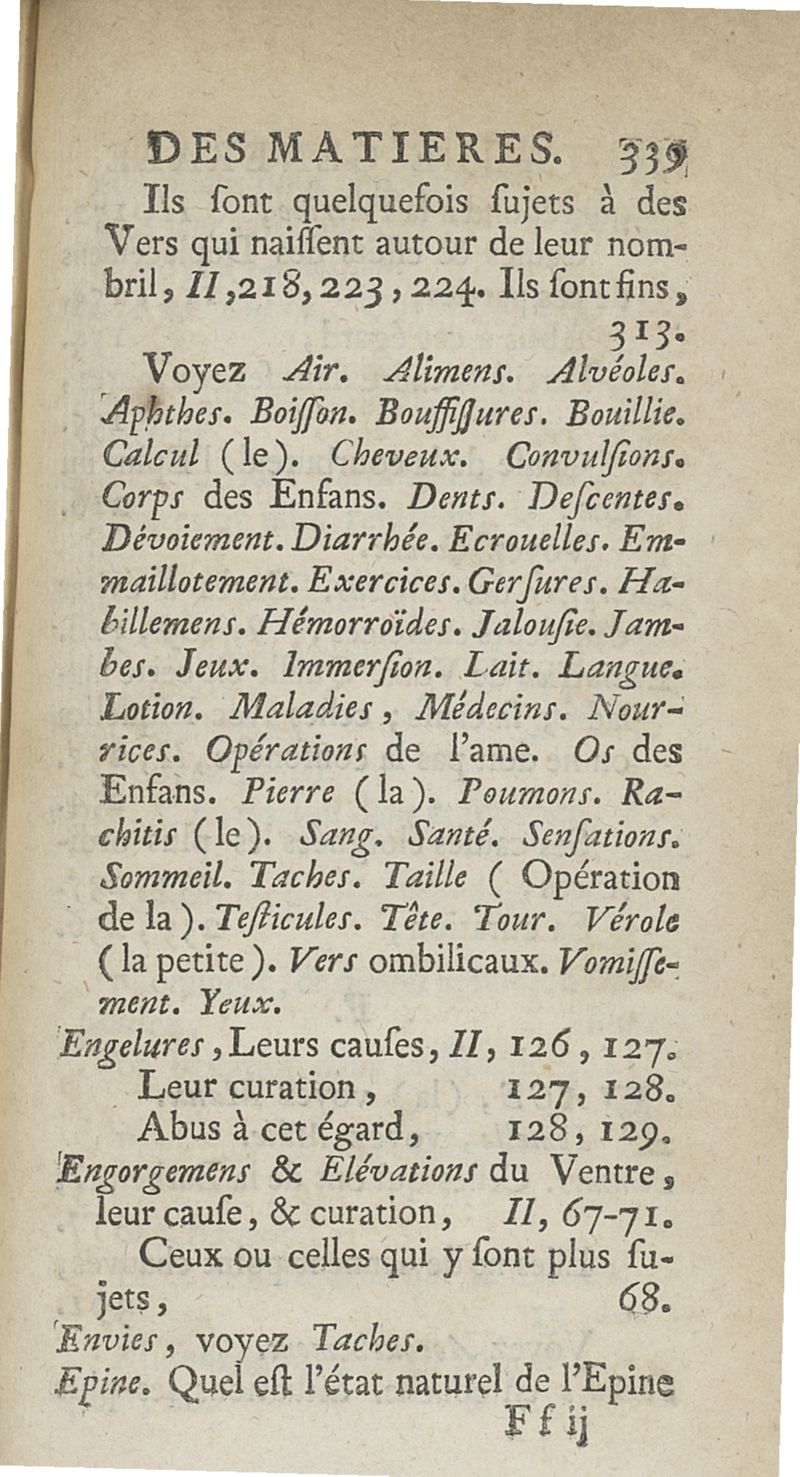 DES MATIERES. 339
Ils ſont quelquefois ſujets à des
Vers qui naiſſent autour de leur nom-
bril, II, 218, 223, 224. Ils ſont fins,
313.
Voyez Air. Alimens. Alvéoles.
Aphthes. Boiſſon. Bouffiſſures. Bouillie.
Calcul (le). Cheveux. Convulſions.
Corps des Enfans. Dents. Deſcentes.
Dévoiement. Diarrhée. Ecrouelles. Em-
maillotement. Exercices. Gerſures. Ha-
billemens. Hémorroïdes. Jalouſie. Jam-
bes. Jeux. Immerſion. Lait. Langue.
Lotion. Maladies, Médecins. Nour-
rices. Opérations de l'ame. Os des
Enfans. Pierre (la). Poumons. Ra-
chitis (le). Sang. Santé. Senſations.
Sommeil. Taches. Taille ( Opération
de la ). Teſticules. Tête. Tour. Vérole
( la petite ). Vers ombilicaux. Vomiſſe-
ment. Yeux.
Engelures, Leurs cauſes, II, 126, 127.
Leur curation, 127, 128.
Abus à cet égard, 128, 129.
Engorgemens & Elévations du Ventre,
leur cauſe, & curation, II, 67-71.
Ceux ou celles qui y ſont plus ſu-
jets, 68.
Envies, voyez Taches.
Epine. Quel eſt l'état naturel de l'Epine
F f ij